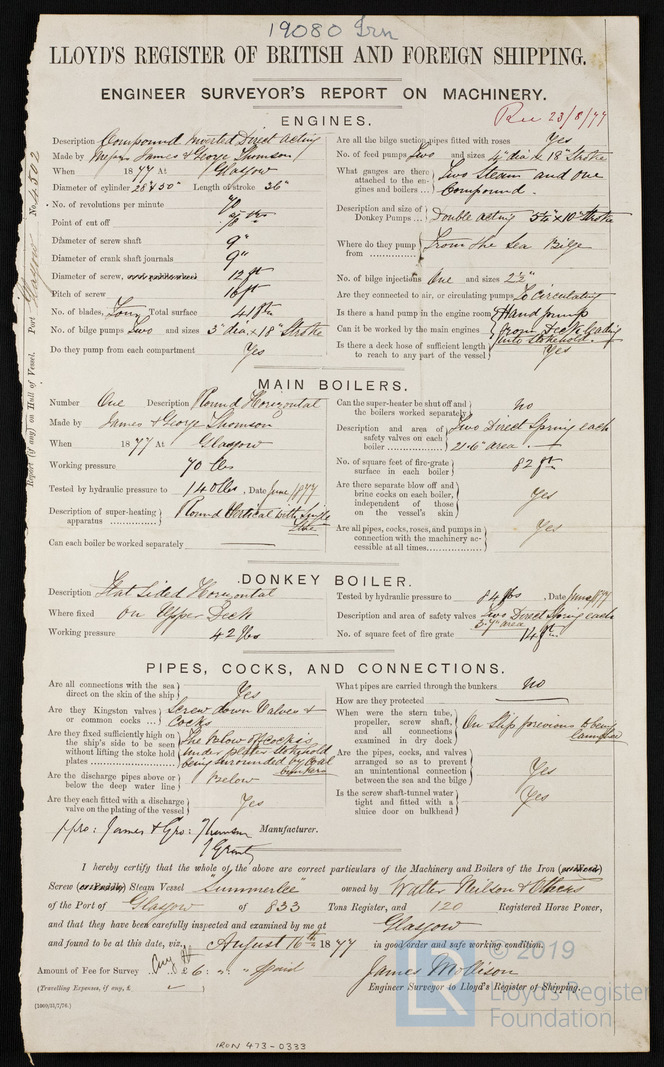 19080 Iron
LLOYD'S REGISTER OF BRITISH AND FOREIGN SHIPPING.
ENGINEER SURVEYOR'S REPORT ON MACHINERY.
Rec 23/8/77
Report (if any) on Hull of Vessel. Port Glasgow No. 4502
ENGINES.
Description Compound Inverted Direct Acting
Made by Messrs James & George Thomson
When 1877 At Glasgow
Diameter of cylinder 28" & 50" Length of stroke 36"
No. of revolutions per minute 70
Point of cut off
Diameter of screw shaft 9"
Diameter of crank shaft journals 9"
Diameter of screw, or of paddle wheels 12 ft
Pitch of screw 16 ft
No. of blades, Four Total surface 41 8
No. of bilge pumps Two and sizes 3" dia. x 18" Stroke
Do they pump from each compartment Yes
Are all the bilge suction pipes fitted with roses Yes
No. of feed pumps Two and sizes 4" dia x 18" Stroke
What gauges are there attached to the engines and boilers ... Two Steam and one Compound.
Description and size of Donkey Pumps ... Double acting 5½" x 10" Stroke
Where do they pump from From the Sea Bilge
No. of bilge injections One and sizes 2½"
Are they connected to air, or circulating pumps To Circulating
Is there a hand pump in the engine room Hand pump
Can it be worked by the main engines from Deck leading into Stokehold.
Is there a deck hose of sufficient length to reach to any part of the vessel Yes
MAIN BOILERS.
Number One Description Round Horizontal
Made by James & George Thomson
When 1877 At Glasgow
Working pressure 70 lbs
Tested by hydraulic pressure to 140 lbs, Date June /877
Description of super-heating apparatus Round Vertical with Single flue
Can each boiler be worked separately
Can the super-heater be shut off and the boilers worked separately No
Description and area of safety valves on each boiler Two Direct Spring each 21.6" area.
No. of square feet of fire-grate surface in each boiler 82 ft
Are there separate blow off and brine cocks on each boiler, independent of those on the vessel's skin Yes
Are all pipes, cocks, roses, and pumps in connection with the machinery accessible at all times Yes
DONKEY BOILER.
Description Flat Sided Horizontal
Where fixed On Upper Deck
Working pressure 42 lbs
Tested by hydraulic pressure to 84 lbs, Date June /877
Description and area of safety valves Two Direct Spring each 3.7" area
No. of square feet of fire grate 14 ft
PIPES, COCKS, AND CONNECTIONS.
Are all connections with the sea direct on the skin of the ship Yes
Are they Kingston valves or common cocks ... Screw down Valves & Cocks
Are they fixed sufficiently high on the ship's side to be seen without lifting the stoke hole plates The blow off cock is under plates Stokehold being surrounded by Coal bunkers
Are the discharge pipes above or below the deep water line Below
Are they each fitted with a discharge valve on the plating of the vessel Yes
What pipes are carried through the bunkers No
How are they protected
When were the stern tube, propeller, screw shaft, and all connections examined in dry dock On Ship previous to being launched
Are the pipes, cocks, and valves arranged so as to prevent an unintentional connection between the sea and the bilge Yes
Is the screw shaft-tunnel water tight and fitted with a sluice door on bulkhead Yes
ppro: James & Geo: Thomson Manufacturer.
J Grant
I hereby certify that the whole of the above are correct particulars of the Machinery and Boilers of the Iron (or Wood)
Screw (or Paddle) Steam Vessel "Summerlee" owned by Walter Neilson & Others
of the Port of Glasgow of 833 Tons Register, and 120 Registered Horse Power,
and that they have been carefully inspected and examined by me at Glasgow
and found to be at this date, viz., August 16th 1877 in good order and safe working condition.
Amount of Fee for Survey £6: " " paid James Mollison
(Travelling Expenses, if any, £ " ) Engineer Surveyor to Lloyd's Register of Shipping.
IRON 473-0333
© 2019
LR
Lloyd's Register
Foundation